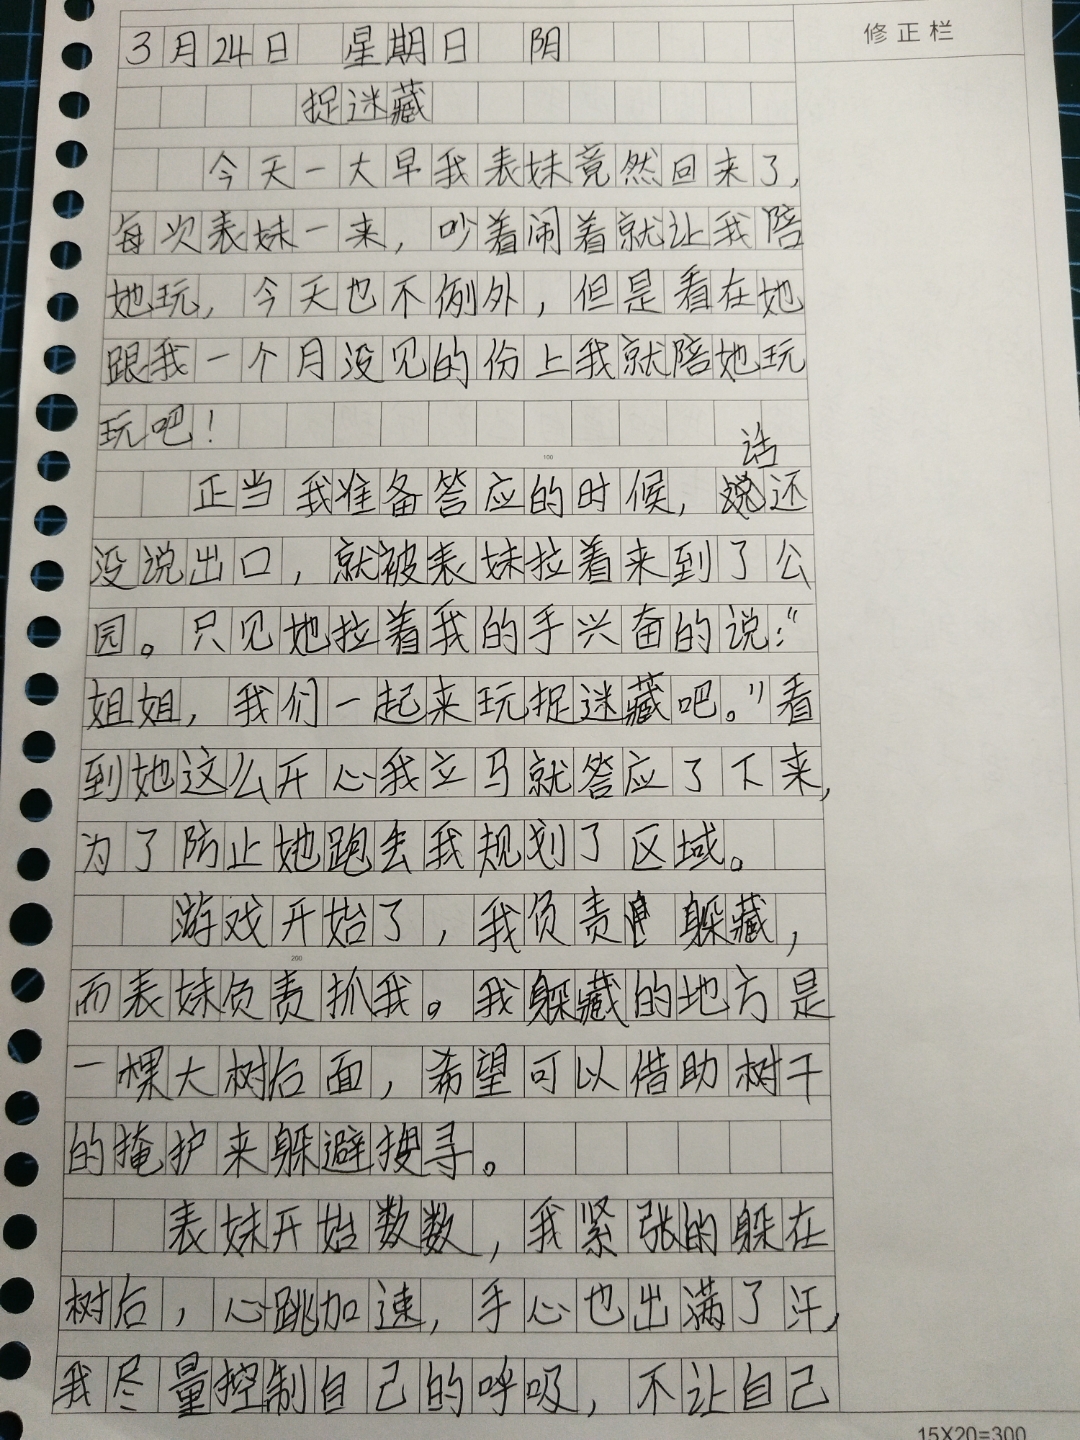 修正栏
3月24日 星期日 阴
捉迷藏
今天一大早我表妹竟然回来了,
每次表妹一来,吵着闹着就让我陪
她玩,今天也不例外,但是看在她
跟我一个月没见的份上我就陪她玩
玩吧!
100
正当我准备答应的时候,话还
没说出口,就被表妹拉着来到了公
园。只见她拉着我的手兴奋的说:“
姐姐,我们一起来玩捉迷藏吧。”看
到她这么开心我立马就答应了下来,
为了防止她跑丢我规划了区域。
游戏开始了,我负责躲藏,
200
而表妹负责抓我。我躲藏的地方是
一棵大树后面,希望可以借助树干
的掩护来躲避搜寻。
表妹开始数数,我紧张的躲在
树后,心跳加速,手心也出满了汗,
我尽量控制自己的呼吸,不让自己
15X20=300